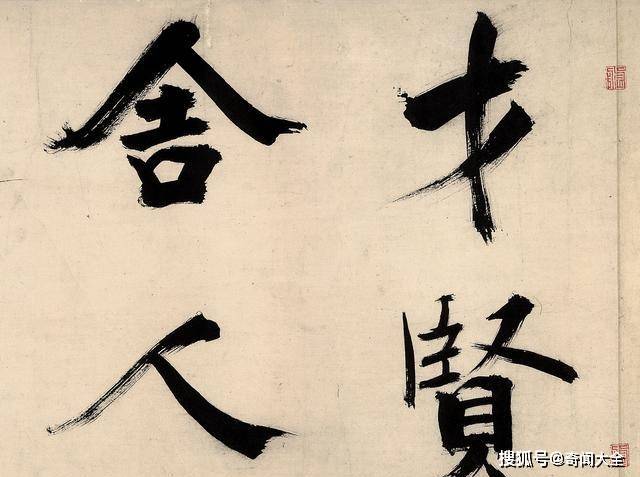 才賢
舍人
搜狐号@奇闻大全